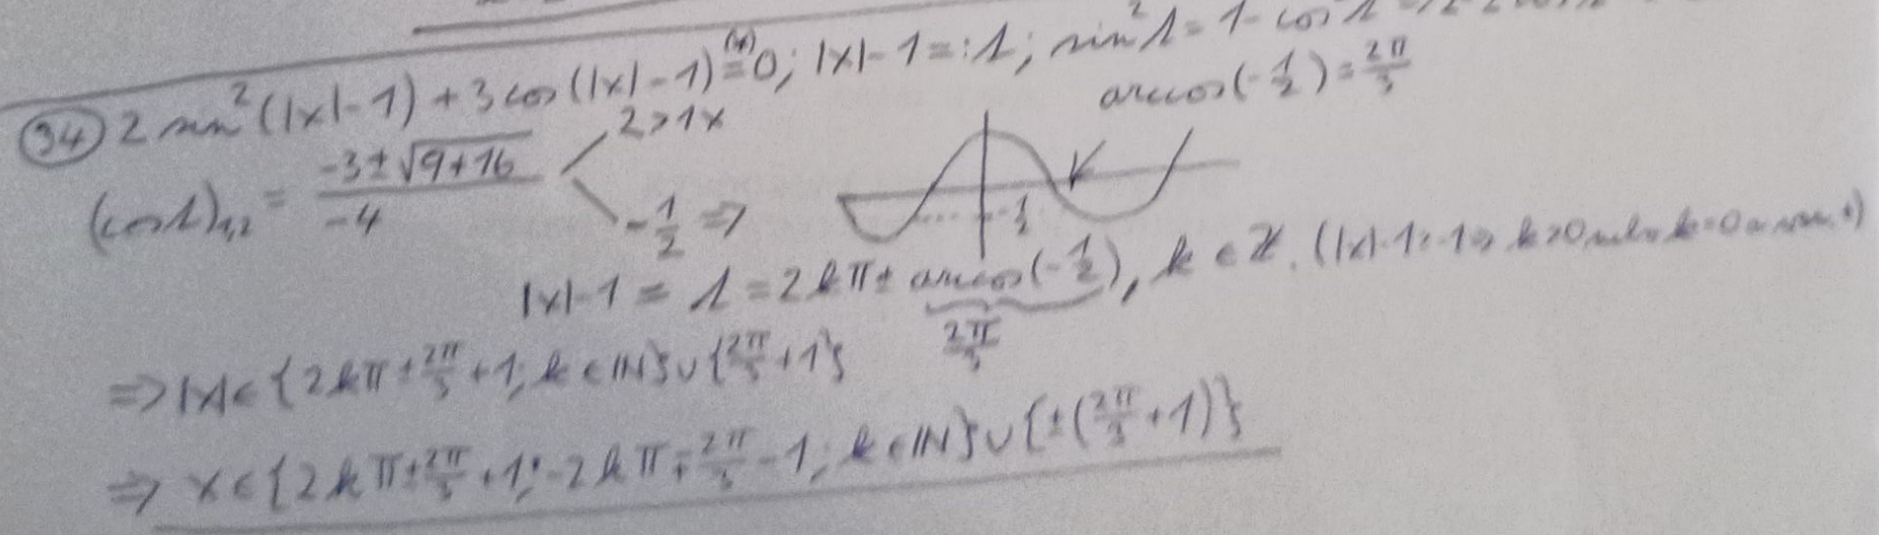 (94) 2 sin²(|x|-1) + 3cos(|x|-1) (*)= 0; |x|-1 =: λ; sin²λ = 1 - cos²λ
arccos(-1/2) = 2π/3
(cosλ)₁,₂ = (-3 ± √(9+16))/(-4) < 2 > 1 x
-1/2 ⇒
-1/2
|x|-1 = λ = 2kπ ± arccos(-1/2), k ∈ ℤ. (|x|-1 ≥ -1 ⇒ k > 0 k = 0)
2π/3
⇒ |x| ∈ {2kπ ± 2π/3 + 1; k ∈ ℕ} ∪ {2π/3 + 1}
⇒ x ∈ {2kπ ± 2π/3 + 1; -2kπ ∓ 2π/3 - 1; k ∈ ℕ} ∪ {±(2π/3 + 1)}